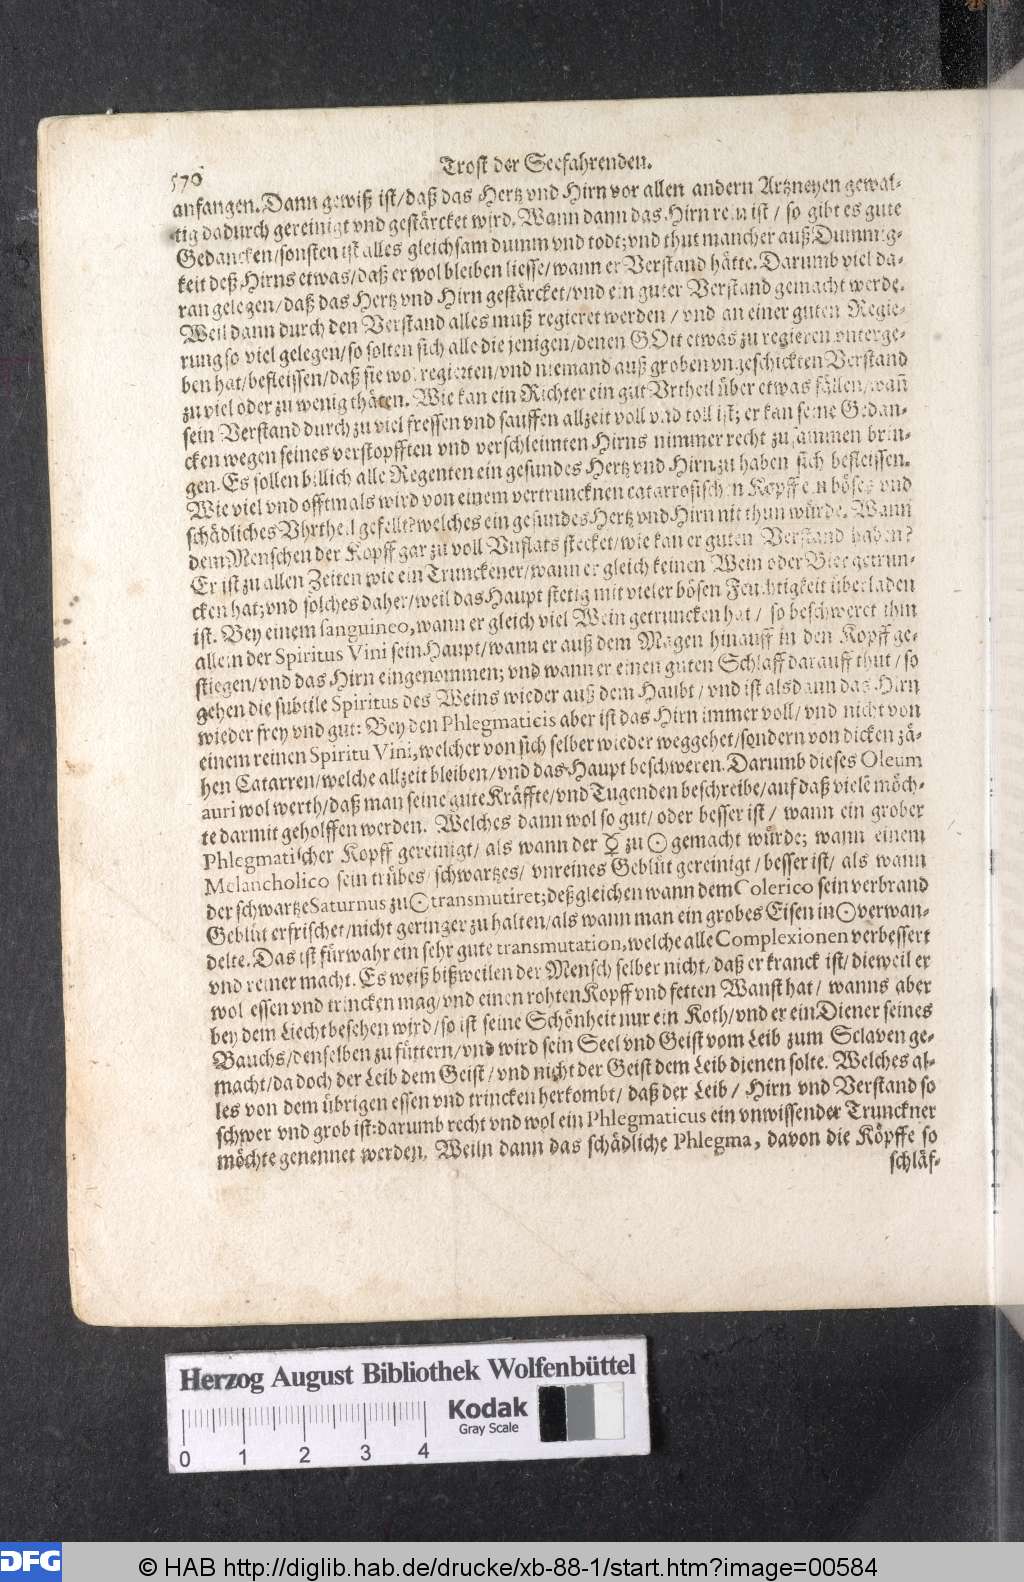 570
Trost der Seefahrenden.
anfangen. Dann gewiß ist/ daß das Hertz vnd Hirn vor allen andern Artzneyen gewal-
tig dadurch gereinigt vnd gestärcket wird. Wann dann das Hirn rein ist / so gibt es gute
Gedancken/ sonsten ist alles gleichsam dumm vnd todt; vnd thut mancher auß Dummig-
keit deß Hirns etwas/ daß er wol bleiben liesse/ wann er Verstand hätte. Darumb viel da-
ran gelegen/ daß das Hertz vnd Hirn gestärcket/ vnd ein guter Verstand gemacht werde.
Weil dann durch den Verstand alles muß regieret werden / vnd an einer guten Regie-
rung so viel gelegen/ so solten sich alle die jenigen/ denen GOtt etwas zu regieren vnterge-
ben hat/ befleissen/ daß sie wol regierten/ vnd niemand auß groben vngeschickten Verstand
zu viel oder zu wenig thäten. Wie kan ein Richter ein gut Vrtheil über etwas fällen/ wañ
sein Verstand durch zu viel fressen vnd sauffen allzeit voll vnd toll ist; er kan seine Gedan-
cken wegen seines verstopfften vnd verschleimten Hirns nimmer recht zusammen brin-
gen. Es sollen billich alle Regenten ein gesundes Hertz vnd Hirn zu haben sich befleissen.
Wie viel vnd offtmals wird von einem vertruncknen catarrosischen Kopff ein böses vnd
schädliches Vhrtheil gefellt? welches ein gesundes Hertz vnd Hirn nit thun würde. Wann
dem Menschen der Kopff gar zu voll Vnflats stecket/ wie kan er guten Verstand haben?
Er ist zu allen Zeiten wie ein Trunckener/ wann er gleich keinen Wein oder Bier getrun-
cken hat; vnd solches daher/ weil das Haupt stetig mit vieler bösen Feuchtigkeit überladen
ist. Bey einem sanguineo, wann er gleich viel Wein getruncken hat / so beschweret ihm
allein der Spiritus Vini sein Haupt/ wann er auß dem Magen hinauff in den Kopff ge-
stiegen/ vnd das Hirn eingenommen; vnd wann er einen guten Schlaff darauff thut / so
gehen die subtile Spiritus des Weins wieder auß dem Haubt / vnd ist alsdann das Hirn
wieder frey vnd gut: Bey den Phlegmaticis aber ist das Hirn immer voll/ vnd nicht von
einem reinen Spiritu Vini, welcher von sich selber wieder weggehet/ sondern von dicken zä-
hen Catarren/ welche allzeit bleiben/ vnd das Haupt beschweren. Darumb dieses Oleum
auri wol werth/ daß man seine gute Kräffte/ vnd Tugenden beschreibe/ auf daß vielë möch-
te darmit geholffen werden. Welches dann wol so gut/ oder besser ist / wann ein grober
Phlegmatischer Kopff gereinigt/ als wann der ☿ zu ☉ gemacht würde; wann einem
Melancholico sein trübes/ schwartzes/ vnreines Geblüt gereinigt / besser ist/ als wann
der schwartze Saturnus zu ☉ transmutiret; deßgleichen wann dem Colerico sein verbrand
Geblüt erfrischet/ nicht geringer zu halten/ als wann man ein grobes Eisen in ☉ verwan-
delte. Das ist fürwahr ein sehr gute transmutation, welche alle Complexionen verbessert
vnd reiner macht. Es weiß bißweilen der Mensch selber nicht/ daß er kranck ist/ dieweil er
wol essen vnd trincken mag/ vnd einen rohten Kopff vnd fetten Wanst hat/ wanns aber
bey dem Liecht besehen wird/ so ist seine Schönheit nur ein Koth/ vnd er ein Diener seines
Bauchs/ denselben zu füttern/ vnd wird sein Seel vnd Geist vom Leib zum Sclaven ge-
macht/ da doch der Leib dem Geist/ vnd nicht der Geist dem Leib dienen solte. Welches al-
les von dem übrigen essen vnd trincken herkombt/ daß der Leib / Hirn vnd Verstand so
schwer vnd grob ist: darumb recht vnd wol ein Phlegmaticus ein vnwissender Trunckner
möchte genennet werden. Weiln dann das schädliche Phlegma, davon die Köpffe so
schläf-
Herzog August Bibliothek Wolfenbüttel
Kodak
Gray Scale
0 1 2 3 4
DFG
© HAB http://diglib.hab.de/drucke/xb-88-1/start.htm?image=00584